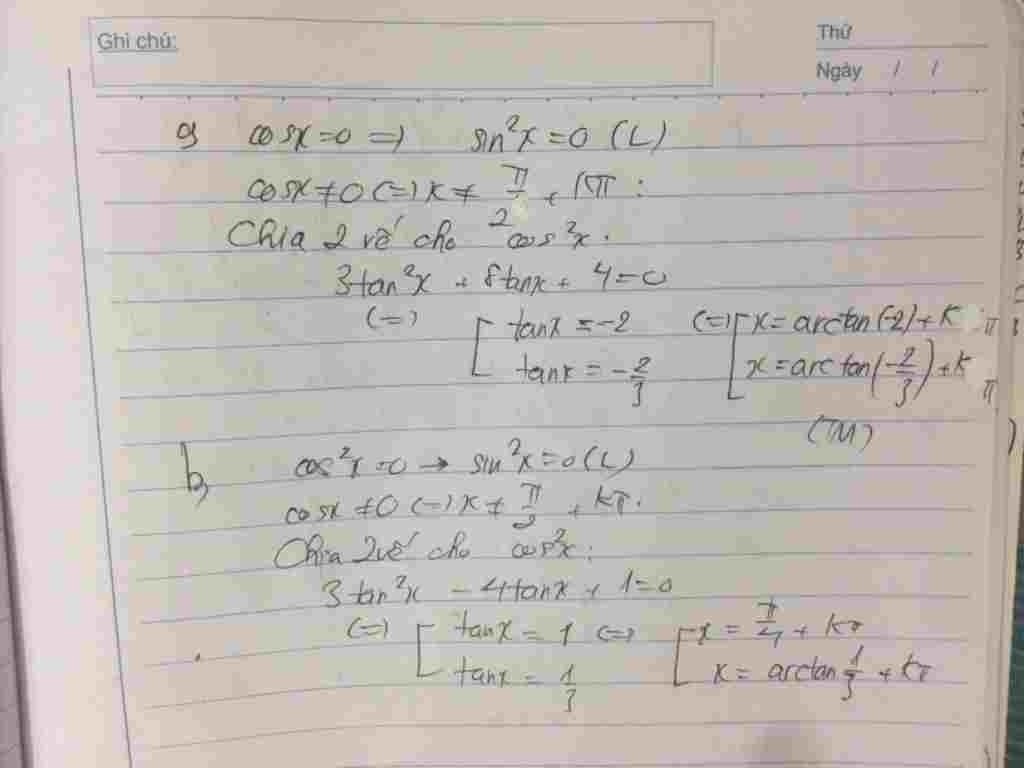 Ghi chú:
Thứ
Ngày / /
a, cosx=0 => sin²x=0 (L)
cosx≠0 (=) x ≠ π/2 + kπ :
Chia 2 vế cho cos²x.
3tan²x + 8tanx + 4=0
(=) [ tanx = -2 (=) [ x = arctan(-2) + kπ
tanx = -2/3 x = arctan(-2/3) + kπ
(TM)
b, cos²x=0 → sin²x=0 (L)
cosx ≠0 (=) x ≠ π/2 + kπ.
Chia 2 vế cho cos²x:
3tan²x - 4tanx + 1=0
(=) [ tanx = 1 (=) [ x = π/4 + kπ
tanx = 1/3 x = arctan 1/3 + kπ